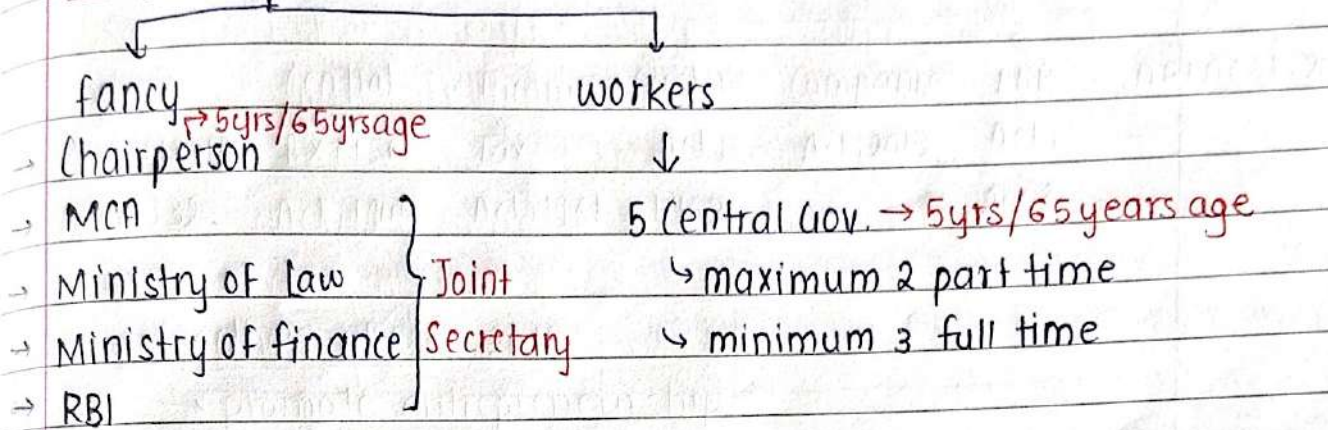 fancy
→ 5yrs/65yrsage
→ Chairperson
→ MCA
→ Ministry of Law
→ Ministry of finance
→ RBI
Joint
Secretary
workers
5 Central Gov. → 5yrs/65 years age
↳ maximum 2 part time
↳ minimum 3 full time